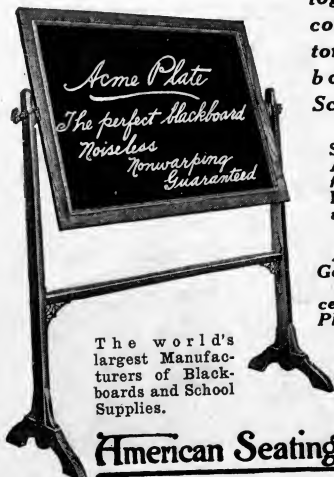 Acme Plate
The perfect blackboard
Noiseless
Nonwarping
Guaranteed
The world's
largest Manufac-
turers of Black-
boards and School
Supplies.
American Seating